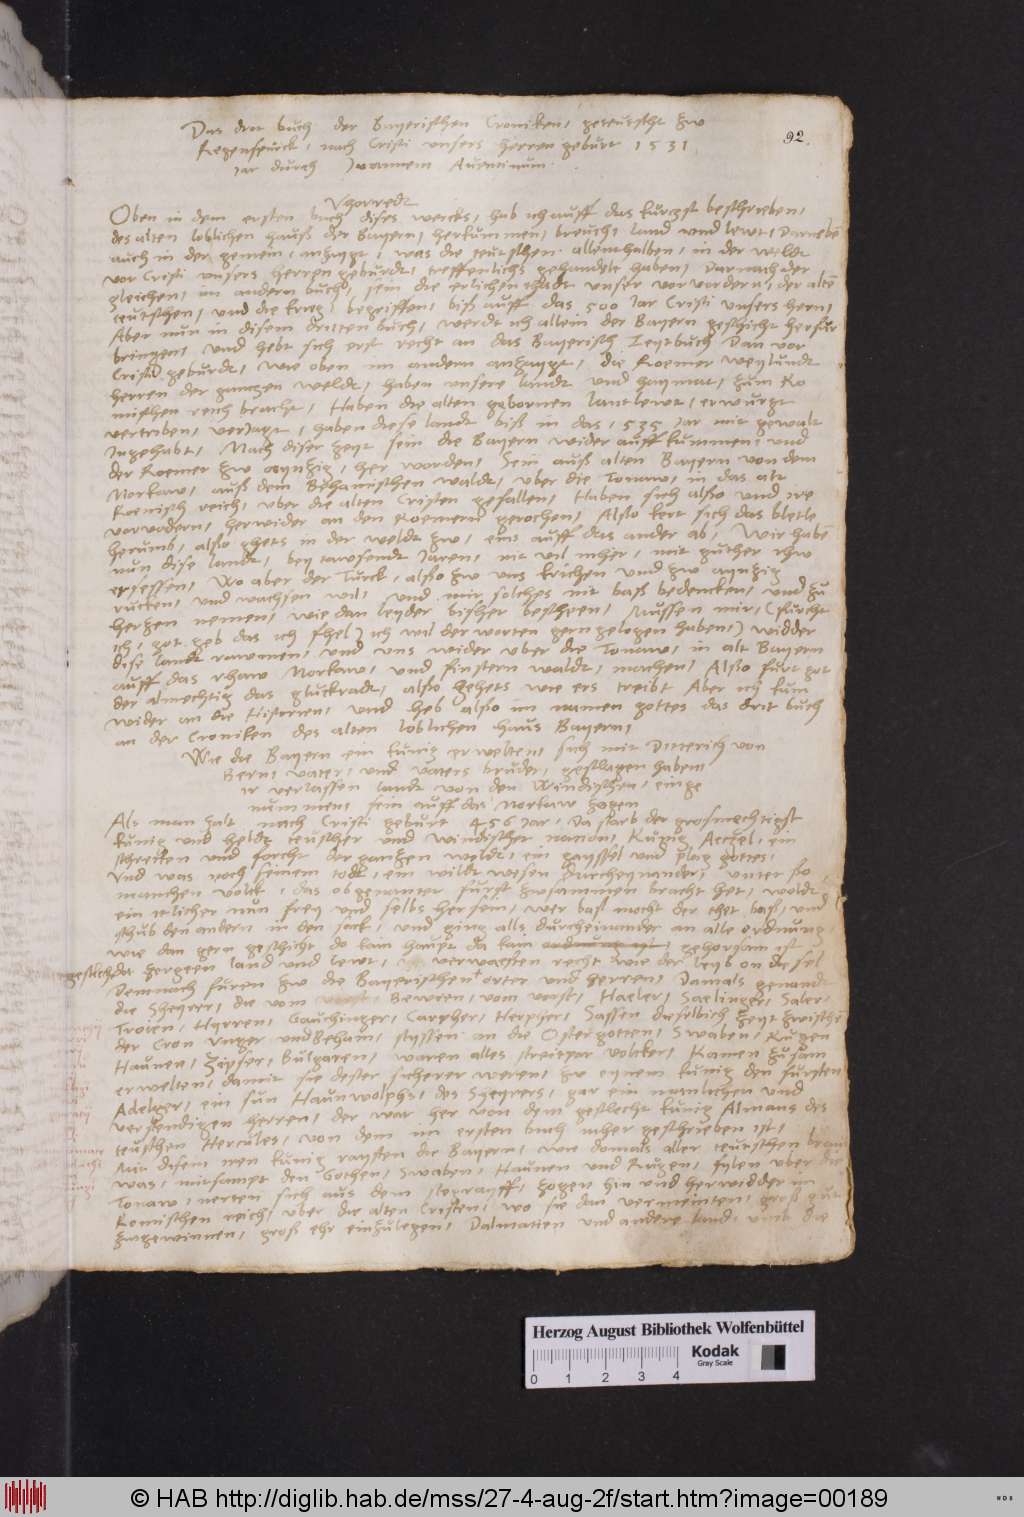 Das drit buch der Bayerischen Croniken, geteutscht zw
Regenspurck, nach Cristi unsers herren geburt 1531
iar durch Joannem Auentinum.
92.
Vhorredt
Oben in dem ersten buch dises wercks, hab ich auff das kurczst beschrieben,
des alten loblichen hauß der Bayern, herkummen, breuch, land und lewt, Darneben
auch in der gemein, anzaygt, was die teutschen allenthalben, in der weldt
vor Cristi unsers herren geburdt, treffenlichs gehandelt haben, Darnach der
gleichen, im andern buch, sein die erlichen thadt unser vorvordern, der alten
teutschen, und die krieg, begriffen, biß auff das 500 Jar Cristi unsers hern,
Aber nun in disem dritten buch, werdt ich allein der Bayern geschicht herfur
bringen, und hebt sich erst recht an das Bayerisch Zeytbuch Dan vor
Cristi geburdt, wie oben im andern anzaygt, die Roemer weylundt
herren der ganczen weldt, haben unsere landt und haymat, zum Ro
mischen reich bracht, Haben die alten gebornen lantlewt, erwurgt
vertriben, verJagt, haben diese landt biß in das, 535 Jar mit gewalt
Ingehabt, Nach diser zeyt sein die Bayern wider auff kummen, und
der Roemer zw aynzig, her worden, Sein auß alten Bayern von dem
Norkaw, auß dem Behamischen waldt, uber die Tonaw, in das alt
Roemisch reich, uber die alten Cristen gefallen, Haben sich also und ire
vorvodern, herwider an den Roemern gerochen, Also kert sich das bletle
herumb, also ghets in der weldt zw, eins auff das ander ab, Wir haben
nun dise landt, bey tawsendt Jaren, nit vil mher, mit guther rhw
ersessen, Wo aber der Turck, also zw uns krichen und zw aynzig
rucken, und wachsen wil, und mir solches nit baß bedencken, und zu
herzen nemen, wie dan leyder bisher bescheen, Mussen mir, (furcht
ich, got geb das ich fhel, ich wil der worten gern gelogen haben,) widder
dise landt rawmen, und uns weider uber die Tonaw, in alt Bayern
auff das rhaw Norkaw, und finstern waldt, machen, Also furt got
der almechtig das gluckradt, also gehets wie ers treibt Aber ich kum
wider an die historien, und heb also im namen gottes das drit buch
an der Croniken des alten loblichen haus Bayern,
Wie die Bayern ein kunig erwelten, sich mit Dieterich von
Bern, vater, und vaters bruder, geschlagen haben
ir verlassen landt von den Windischen, einge
nummen, sein auff das Norkaw zogen
Als man zalt nach Cristi geburt 456 Jar, Da starb der grosmechtigst
kunig und heldt teutscher und windischer nation, Kunig Aeczel, ein
schrecken und forcht der ganzen weldt, ein gayssel und plag gottes,
Und was noch seinem todt, ein wildt wesen durcheynander, unter so
manchen volck, das obgenanter furst zwsammen bracht het, woldt
ein itlicher nun frey und selbs her sein, wer baß mocht der thet baß, und
schub den andern in den sack, und ging alls durcheinander an alle ordnung,
wie dan gern geschicht do kain haupt da kain gehorsam ist,
zergeen land und lewt, verwuesten recht wie der leyb on die sel
Demnach furen zw die Bayerischen orter und herren, Damals genandt
die Sheyrer, die vom Bewren, vom vnst, Haeler, Saelinger, Saler,
Troien, Hyrren, Gauchinger, Carpher, Herpfer, Sassen dieselbich zeyt zwischen
der Cron Unger und Beham, stiessen an die Ostergotten, Swaben, Rugen
Haunen, Zipser, Bulgaren, waren alles streitpar volcker, Kamen zusam
erwelten, damit sie dester sicherer weren, zw eynem kunig den fursten
Adelger, ein sun Haunwolphs, des Sheyrers, gar ein manlichen und
verstendigen herren, der war her von dem geschlecht kunig Almans des
teuschen Hercules, von dem im ersten buch mher geschrieben ist,
Mit disem iren kunig raysten die Bayern, wie domals aller teutschen brauch
was, mitsampt den Gothen, Swaben, Haunen und Rugen, fylen uber die
Tonaw, nerten sich aus dem stegrayff, zogen hin und herwidder im
Romischen reich, uber die alten Cristen, wo sie dan vermeinten, groß gut
zwgewinnen, groß ehr einzulegen, Dalmatien und andere land, umb die
Herzog August Bibliothek Wolfenbüttel
Kodak
Gray Scale
0 1 2 3 4
© HAB http://diglib.hab.de/mss/27-4-aug-2f/start.htm?image=00189